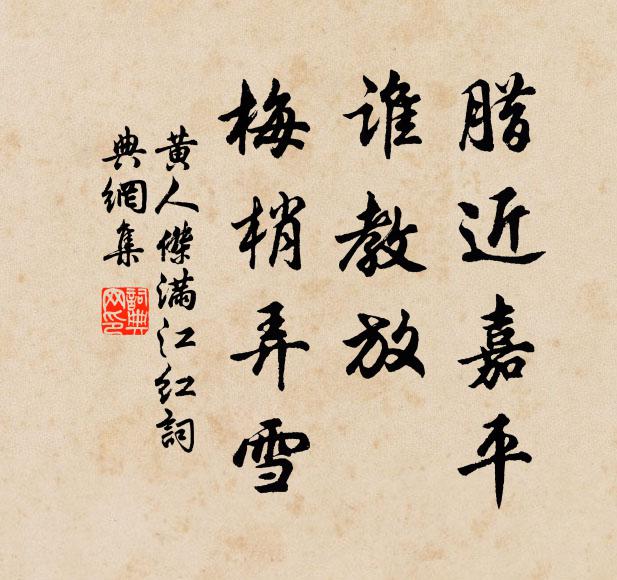 腊近嘉平
谁教放
梅梢弄雪
黄人傑满江红詞
典網集
詞典
网印